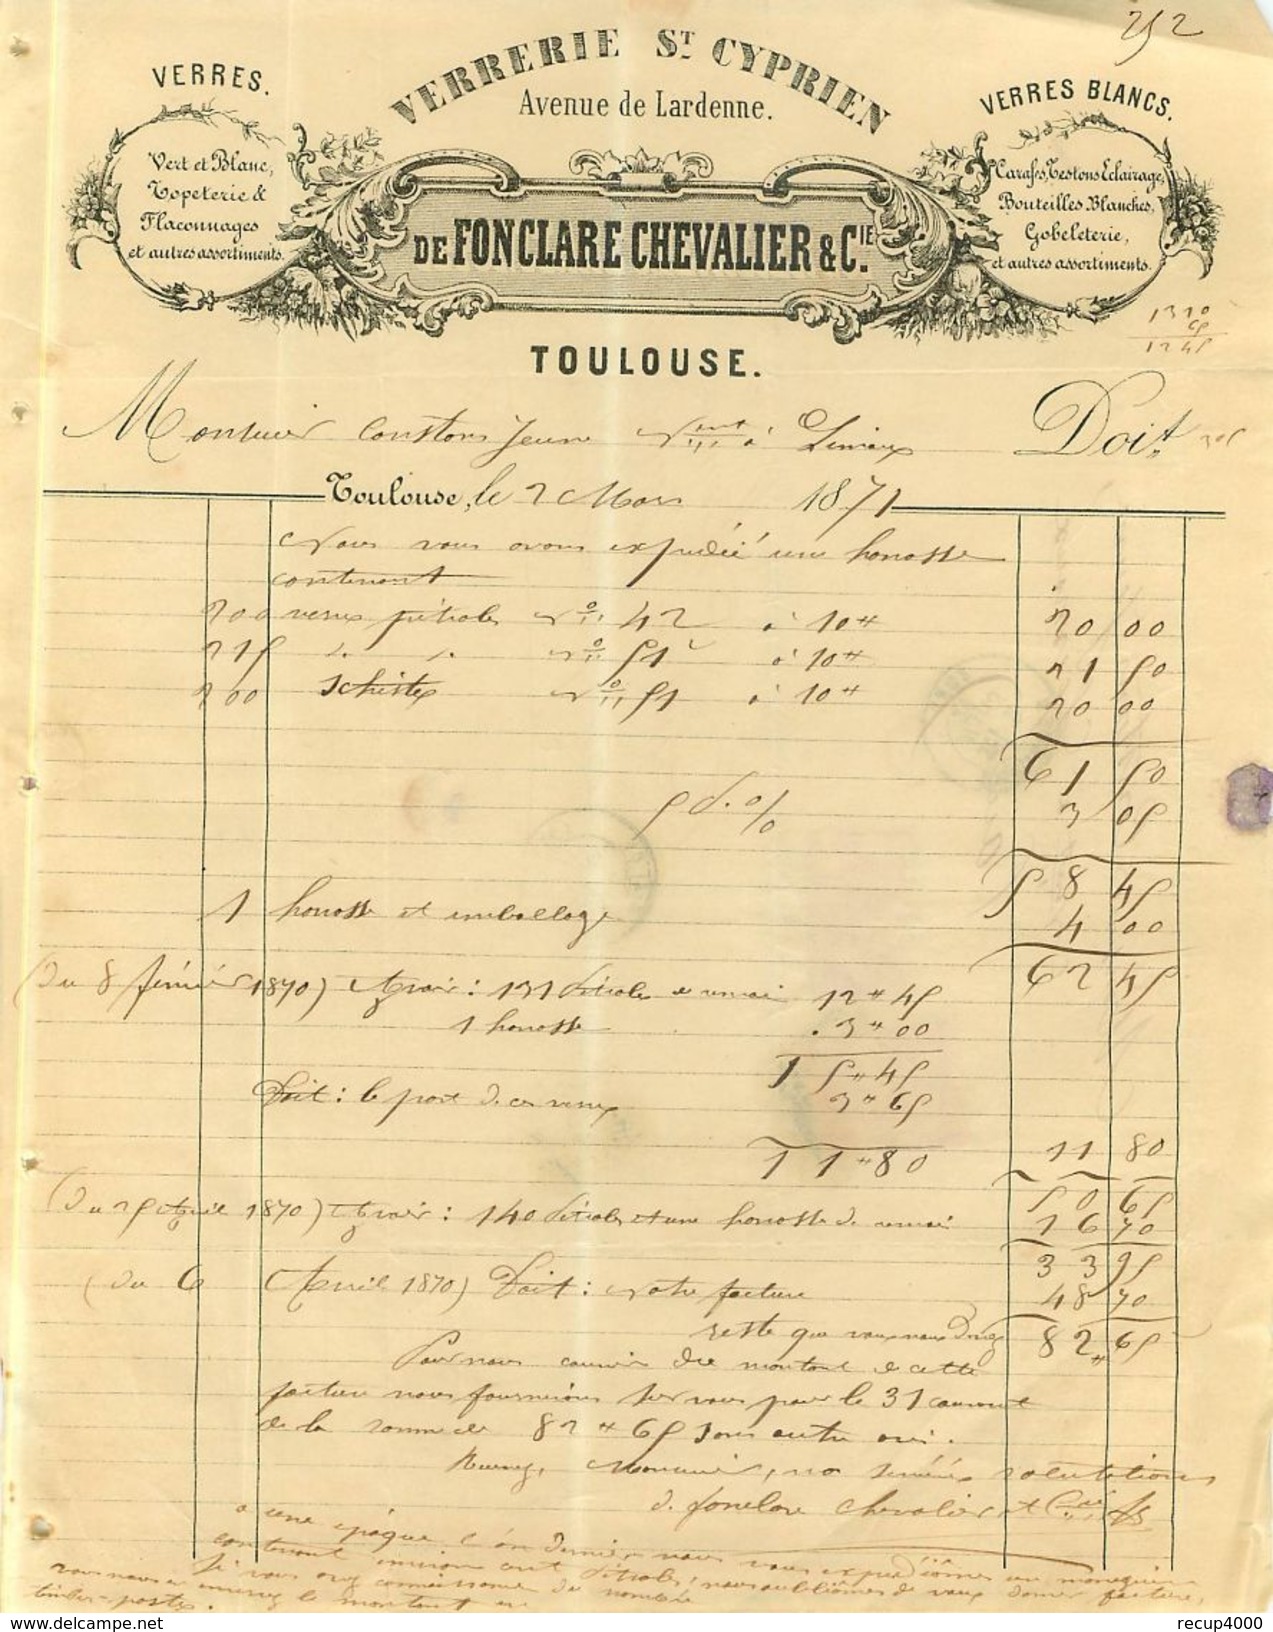 252
VERRERIE ST. CYPRIEN
Avenue de Lardenne.
VERRES.
Vert et Blanc,
Topeterie &
Flaconnages
et autres assortiments.
VERRES BLANCS.
Carafes, Testons Eclairage,
Bouteilles Blanches,
Gobeleterie,
et autres assortiments.
DE FONCLARE CHEVALIER & CIE.
TOULOUSE.
1310
65
1245
Monsieur Constons Jeune à Limoux Doit
Toulouse, le 2 Mars 1871
Nous vous avons expédié une honasse
contenant
200 verres pétroles No 42 à 10" 20 00
215 " " No 51 à 10" 21 50
200 Schistes No 51 à 10" 20 00
61 50
5 d. % 3 05
58 45
1 honasse et emballage 4 00
62 45
(du 8 février 1870) Avoir : 131 Pétroles 12 " 45
1 honasse 3 " 00
15 " 45
Doit : le port de ces verres 3 " 65
11 " 80 11 80
50 65
(du 25 Avril 1870) Avoir : 140 Pétroles et une honasse de 16 70
33 95
(du 6 Avril 1870) Doit : Notre facture 48 70
reste que vous nous devez 82 " 65
Pour nous couvrir du montant de cette
facture nous fournirons sur vous pour le 31 courant
de la somme de 82 " 65 sans autre avis.
Recevez, Monsieur, nos sincères salutations
d. fonclare Chevalier et Cie
a une époque l'an dernier nous vous expédiâmes un
contenant environ cent Pétroles, nous oubliâmes de vous donner facture,
Si vous avez connaissance du nombre
vous nous en enverrez le montant en
timbres-postes.
recup4000